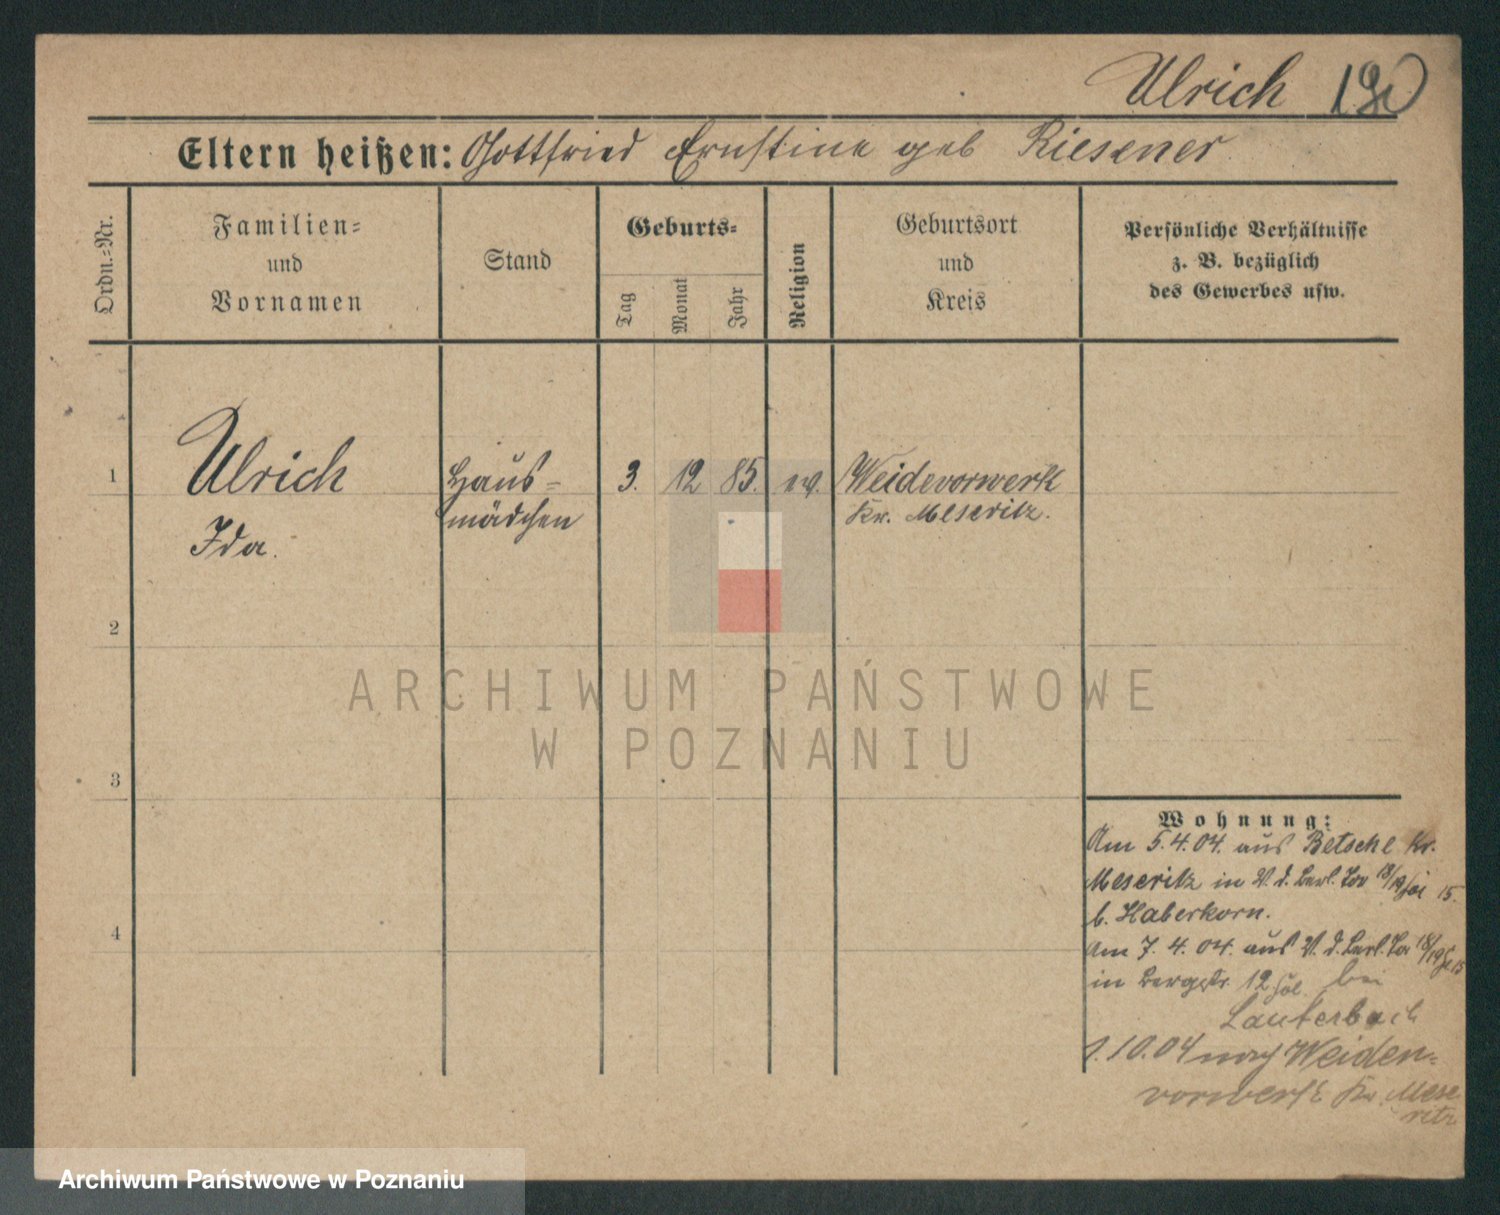 Ulrich 190
Eltern heißen: Gottfried Ernstine geb Riesener
Ordn.=Nr.
Familien=
und
Vornamen
Stand
Geburts=
Tag
Monat
Jahr
Religion
Geburtsort
und
Kreis
Persönliche Verhältnisse
z. B. bezüglich
des Gewerbes usw.
1
Ulrich
Ida.
Haus=
mädchen
3. 12 85. ev.
Weidevorwerk
Kr. Meseritz.
2
3
4
ARCHIWUM PAŃSTWOWE
W POZNANIU
Wohnung:
Am 5.4.04. aus Betsche Kr.
Meseritz in V. d. Berl. Tor 18/19 15.
b. Haberkorn.
Am 7. 4. 04. aus V. d. Berl. Tor 18/19 15
in Bergstr. 12 bei
Lauterbach
1.10.04 nach Weiden=
vorwerk Kr. Mese
ritz
Archiwum Państwowe w Poznaniu